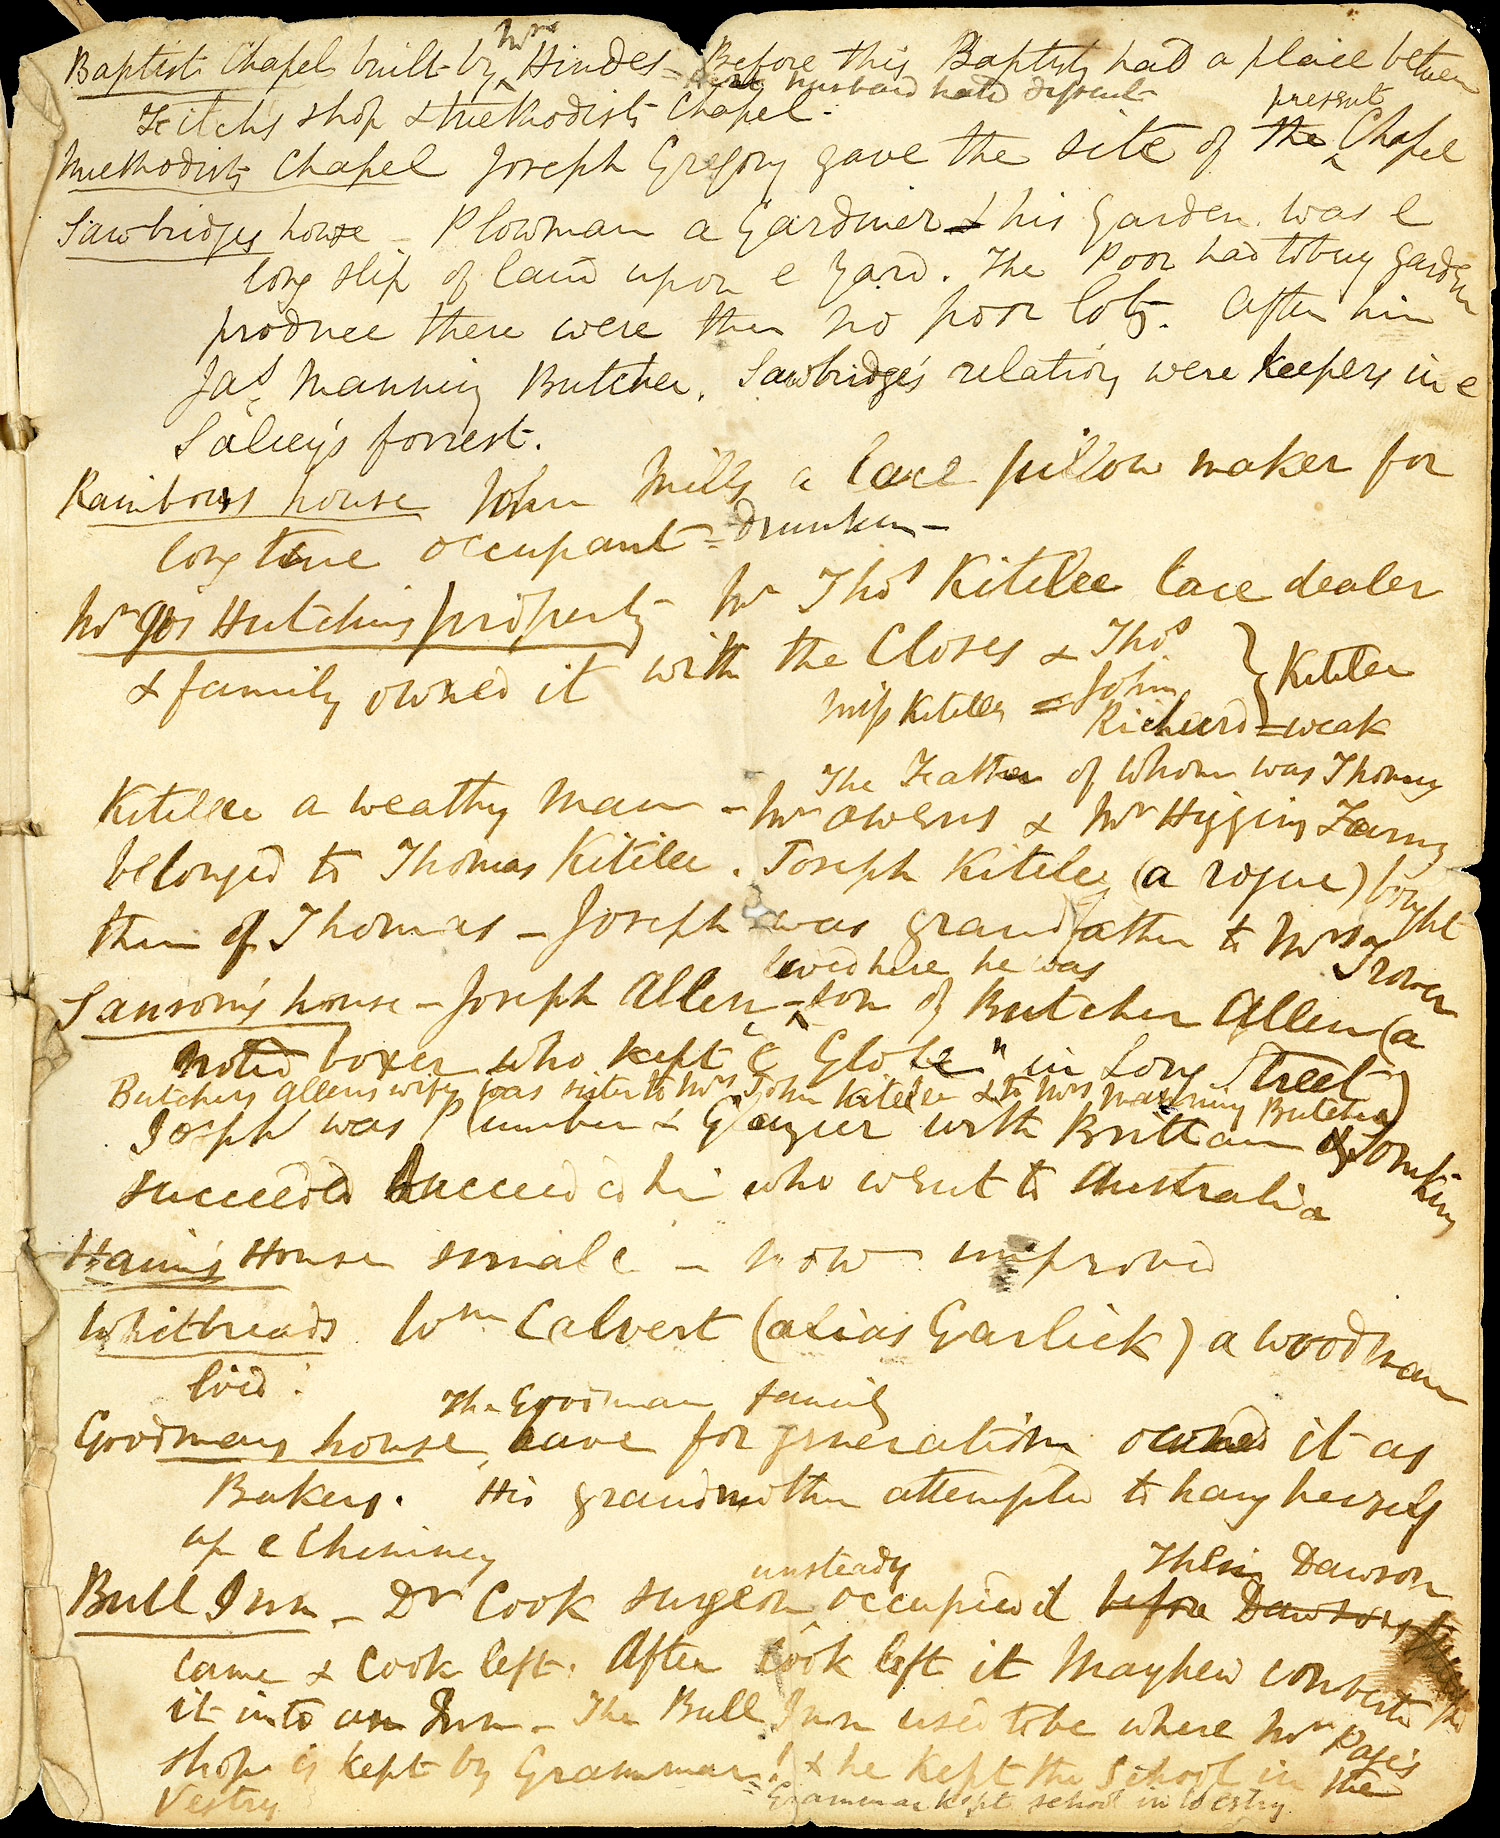 Mrs
Baptist Chapel built by ^ Hindes = Before this Baptists had a place between
husband hated dissent
Fitchs shop & Methodists Chapel -
present
Methodists Chapel Joseph Gregory gave the site of the ^ Chapel
Sawbridges house - Plowman a Gardiner & his garden was e
long slip of land upon e yard. The Poor had to buy garden
produce there were then no poor lots. After him
Jas Manning Butcher. Sawbridge's relations were keepers in e
Salcey's forrest.
Rainbows house John Mills a lace pillow maker for
long time occupant = drunken -
Mr Jos Hutchins property - Mr Thos Kitelee lace dealer
& family owned it with the Closes & Thos
Miss Kitelee = John } Kitelee
Richard = weak
The Father of whom was Thomas
Kitelee a weathy man - Mr Owens & Mr Higgins Farms
belonged to Thomas Kitelee. Joseph Kitelee (a rogue) bought
them of Thomas - Joseph was grandfather to Mrs Trower
lived here he was
Sansom's house - Joseph Allen - ^ son of Butcher Allen (a
noted boxer who kept "e Globe" in Long Street)
Butchers Allens wife was sister to Mrs John Kitelee & to Mrs Manning Butcher)
Joseph was Plumber & Glazier with Brittain & Tomkins
succeeded succeeded him who went to Australia
House small - now improved
Whitbreads Wm Calvert (alias Garlick) a woodman
livd.
The Goodman family
Goodmans house ^ have for generation owned it as
Bakers. His grandmother attempted to hang herself
up e Chimney
unsteady Then Dawson
Bull Inn - Dr Cook surgeon occupied it before Dawsons
came & Cook left. After Cook left it Mayhew converted
it into an Inn - The Bull Inn used to be where Mr Page's
shop is kept by Grammar! & he kept the School in the
Vestry Grammar kept school in Vestry